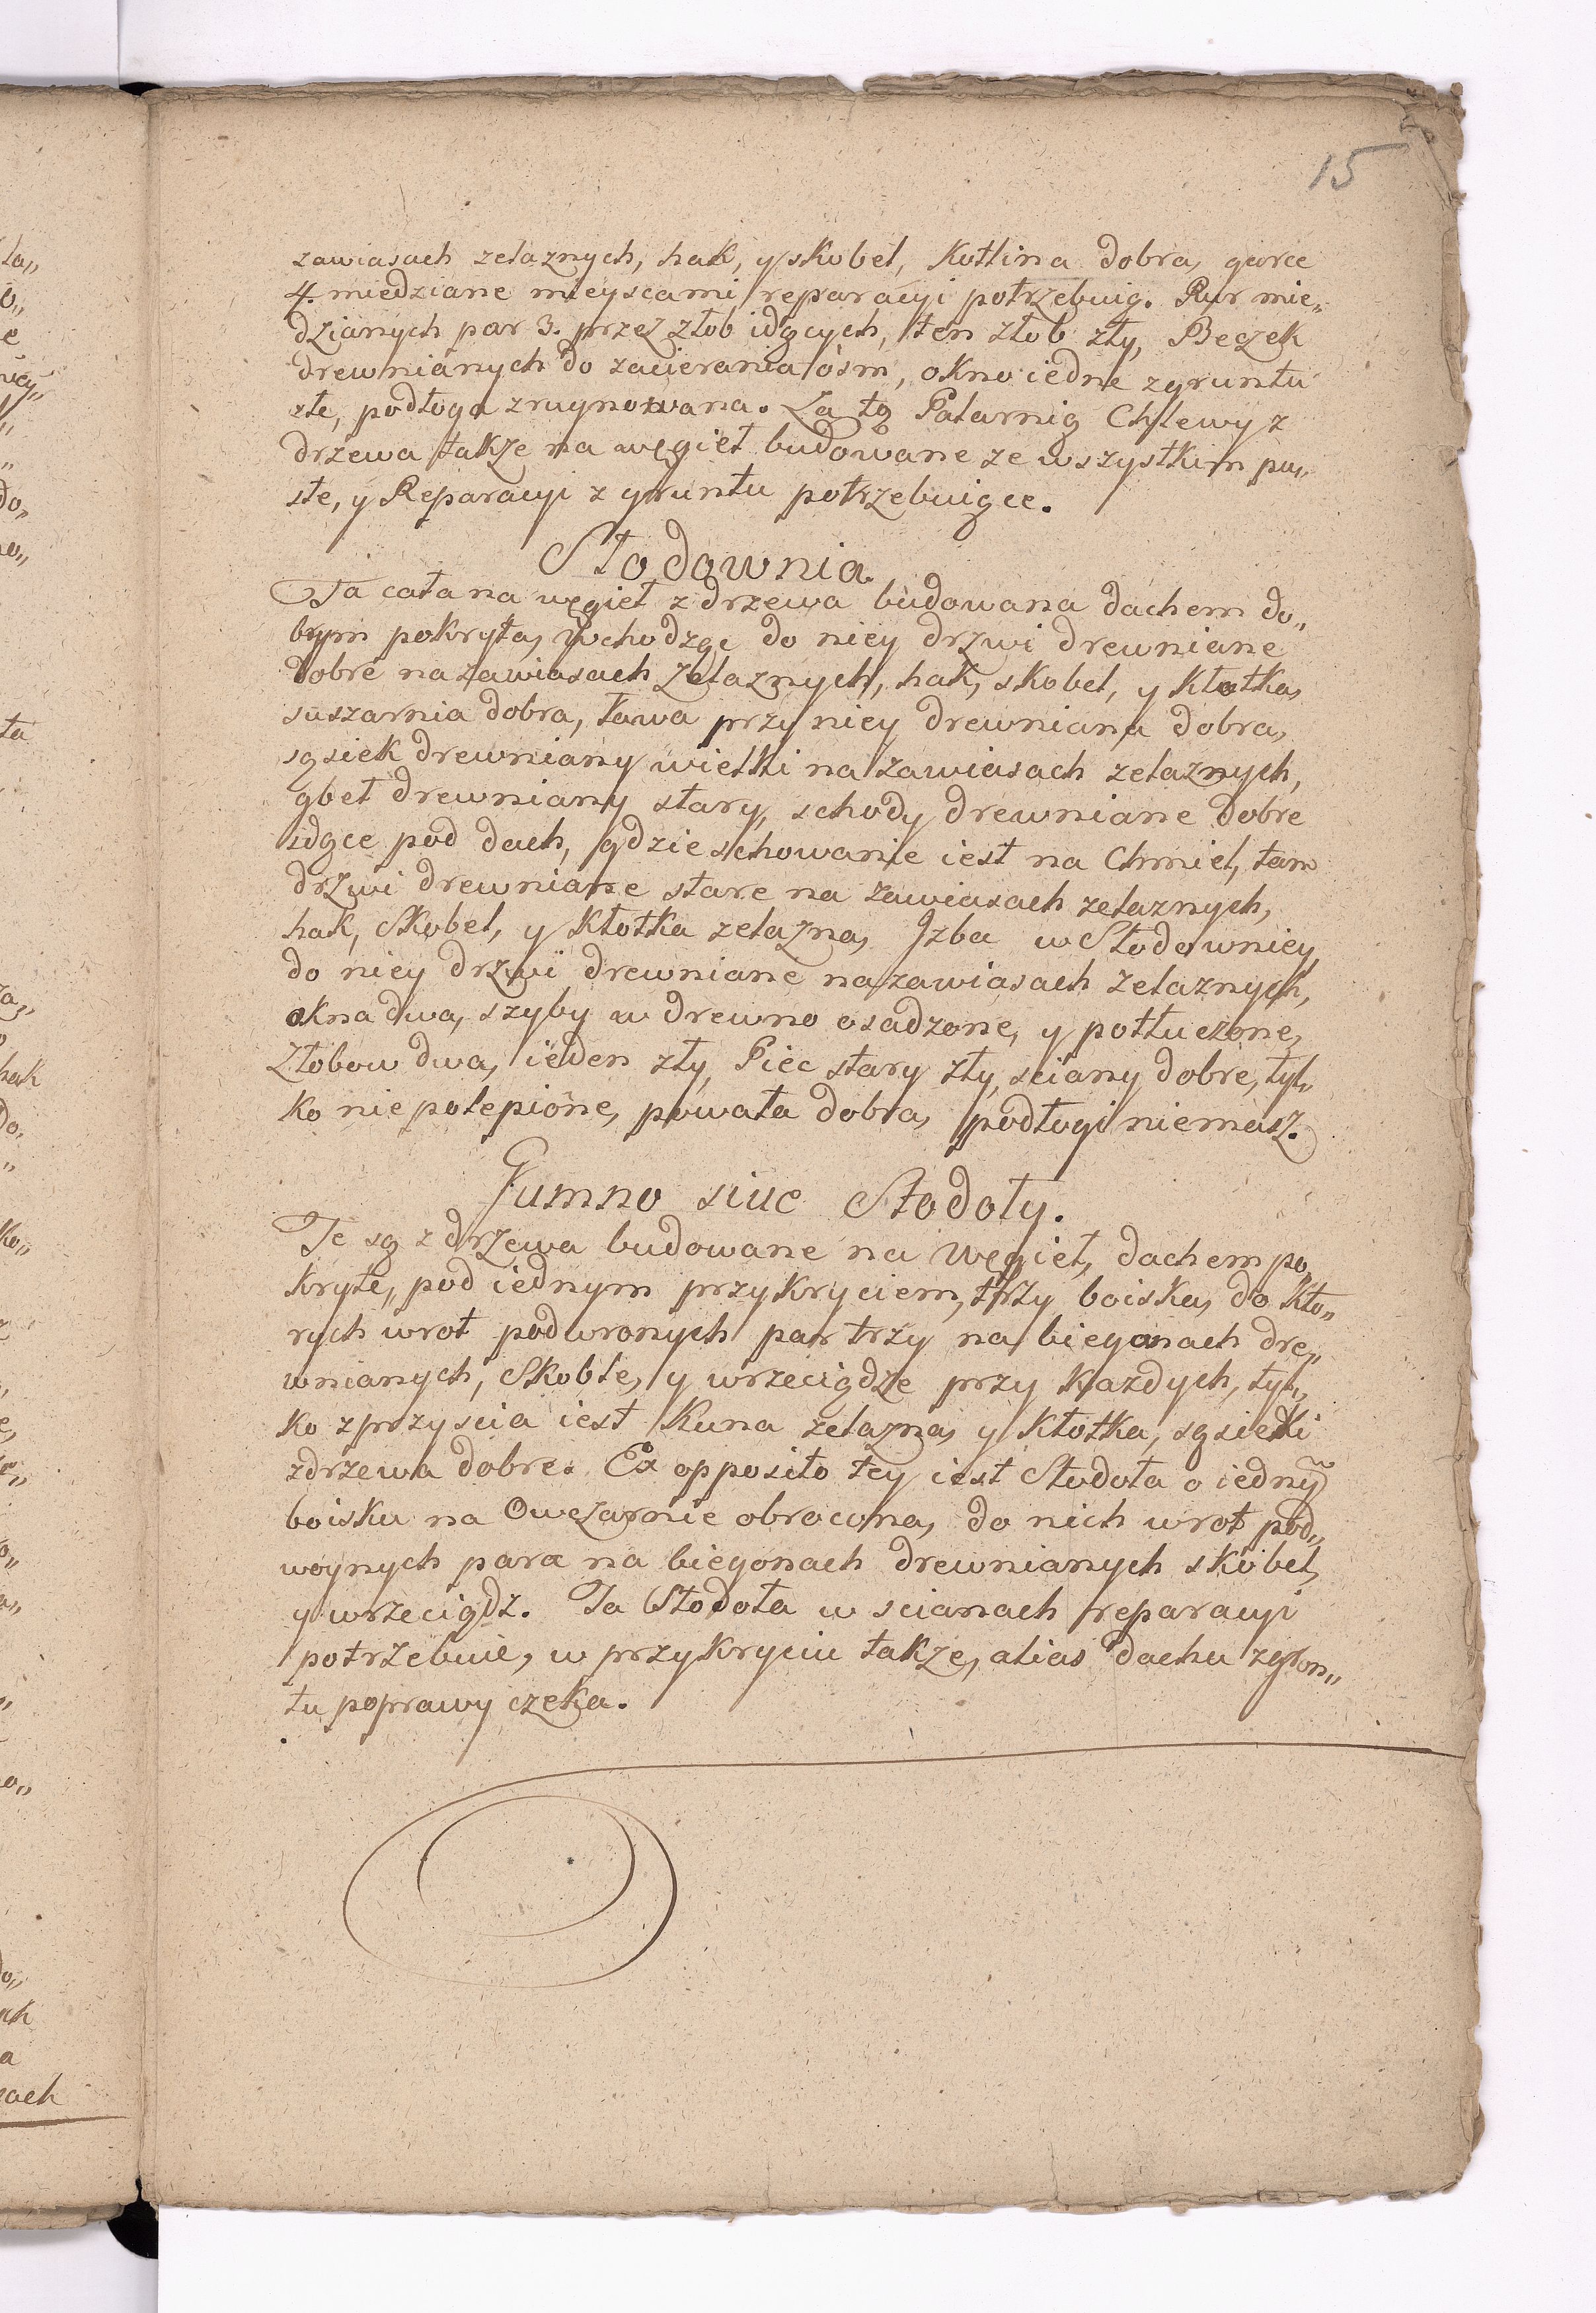 15
zawiasach zelaznych, hak, y skobel, Kotlina dobra, garce
4. miedziane mieyscami reparacyi potrzebuią. Rur mie„
dzianych par 3. przez złob idących, ten złob zły, Beczek
drewnianych do zacierania ośm, okno iedne z gruntu
złe, podłoga zrugnowana. Za tą Palarnią Chlewy z
drzewa także na węgieł budowane ze wszystkim pu„
ste, y Reparacyi z gruntu potrzebuiące.
Słodownia
Ta cała na węgieł z drzewa budowana dachem do„
brym pokryta, Wchodząc do niey drzwi drewniane
dobre na zawiasach Zelaznych, hak, skobel, y kłotka,
suszarnia dobra, ława przy niey drewniana dobra,
sąsiek drewniany wielki na zawiasach zelaznych,
gbeł drewniany stary, schody drewniane dobre
idące pod dach, gdzie schowanie iest na Chmiel, tam
drzwi drewniane stare na zawiasach zelaznych,
hak, Skobel, y Kłotka zelazna, Izba w Słodowniey,
do niey drzwi drewniane na zawiasach Zelaznych,
okna dwa, szyby w drewno osadzone, y potłuczone,
Złobow dwa, ieden zły, Piec stary zły, sciany dobre, tyl„
ko nie polepione, powała dobra, podłogi niemasz.
Gumno siue Stodoły.
Te są z drzewa budowane na Węgieł, dachem po„
kryte, pod iednym przykryciem, trzy boiska, do kto„
rych wrot podwronych par trzy na biegonach dre„
wnianych, Skoble, y wrzeciądze przy każdych, tyl„
ko z przyscia iest Kuna zelazna, y Kłotka, sąsieki
z drzewa dobre. Ex opposito tey iest Stodoła o iednỹ
boisku na Owczarnie obrocona, do nich wrot pod„
woynych para na biegonach drewnianych skobel,
y wrzeciądz. Ta Stodoła w scianach reparacyi
potrzebuie, w przykryciu także, alias dachu zgron„
tu poprawy czeka.